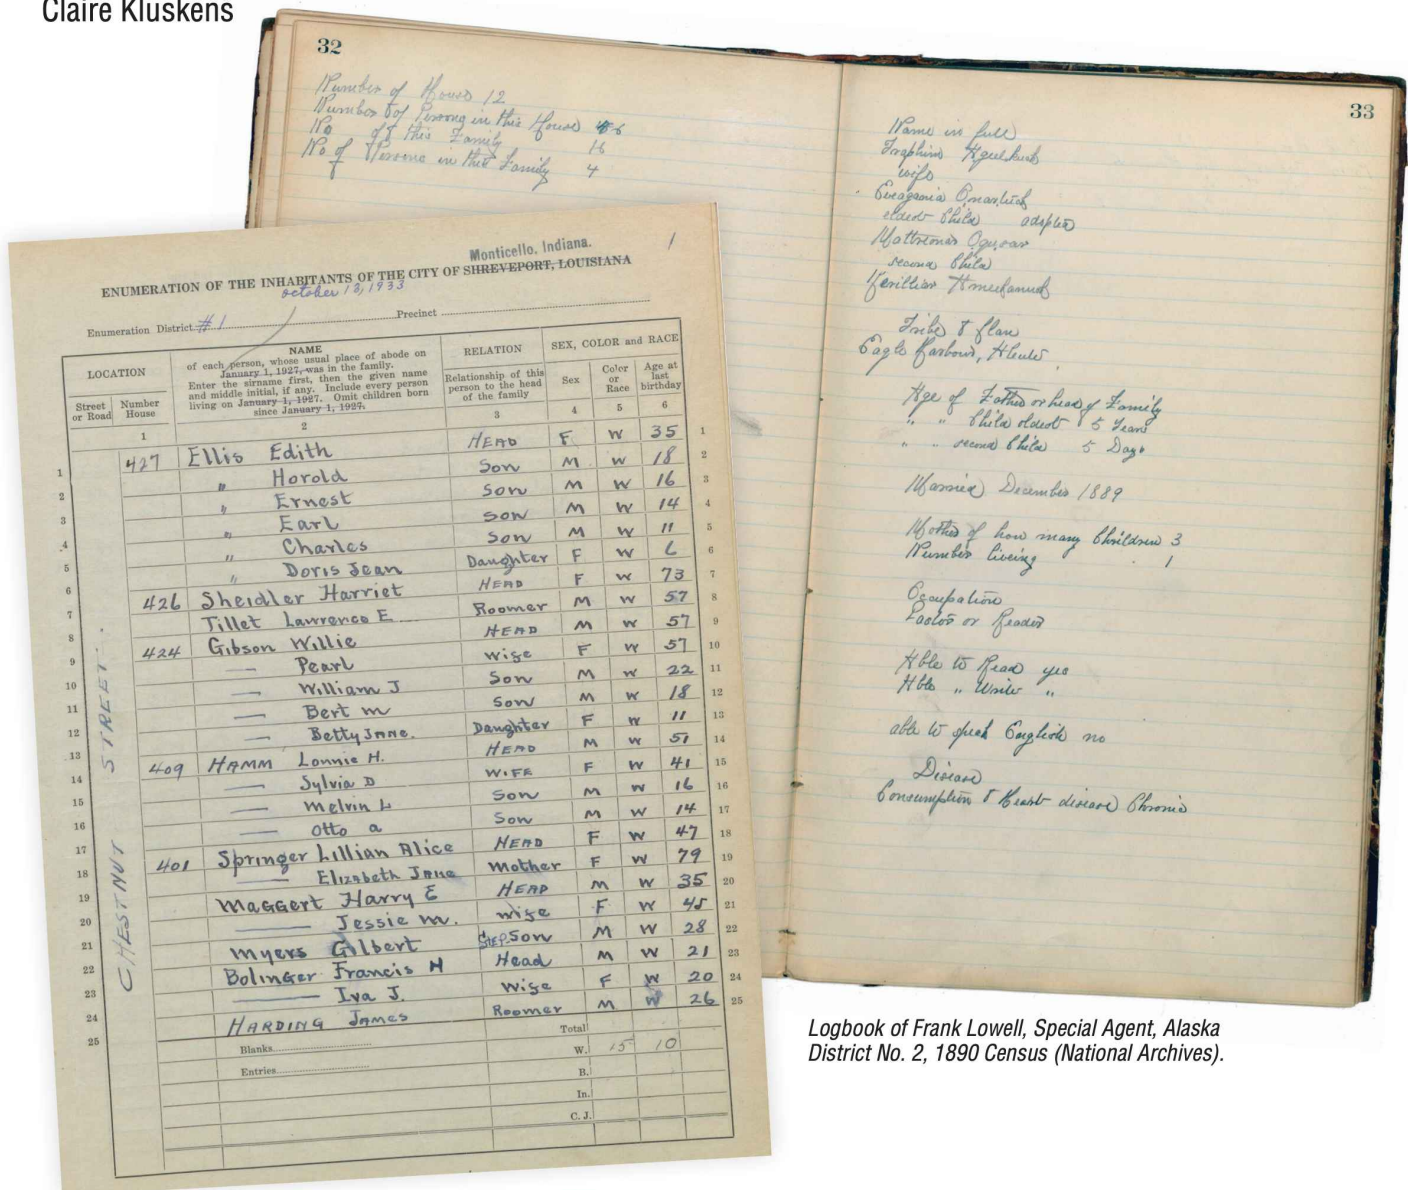 Claire Kluskens
32
Number of House 12
Number of Persons in this House 6
No of this Family 16
No of Persons in this Family 4
33
Name in full
wife
eldest Child adopted
second Child
Tribe & Clan
Eagle Harbour, Aleute
Age of Father or head of Family
" " Child oldest 5 Years
" " second Child 5 Days
Married December 1889
Mother of how many Children 3
Number liveing 1
Occupation
or Reader
Able to Read yes
Able " Write "
able to speak English no
Disease
Consumption & Heart disease Chronic
Monticello, Indiana.
1
ENUMERATION OF THE INHABITANTS OF THE CITY OF SHREVEPORT, LOUISIANA
October 13, 1933
Enumeration District #1 Precinct
LOCATION
Street or Road
Number House
1
NAME
of each person, whose usual place of abode on
January 1, 1927, was in the family.
Enter the sirname first, then the given name
and middle initial, if any. Include every person
living on January 1, 1927. Omit children born
since January 1, 1927.
2
RELATION
Relationship of this
person to the head
of the family
3
SEX, COLOR and RACE
Sex
4
Color
or
Race
5
Age at
last
birthday
6
CHESTNUT STREET
1 427 Ellis Edith HEAD F W 35 1
2 " Horold Son M W 18 2
3 " Ernest Son M W 16 3
4 Earl Son M W 14 4
5 " Charles Son M W 11 5
6 " Doris Jean Daughter F W 6 6
7 426 Sheidler Harriet HEAD F W 73 7
8 Tillet Lawrence E Roomer M W 57 8
9 424 Gibson Willie HEAD M W 57 9
10 — Pearl wife F W 57 10
11 — William J Son M W 22 11
12 — Bert M Son M W 18 12
13 — Betty Jane. Daughter F W 11 13
14 409 HAMM Lonnie H. HEAD M W 51 14
15 — Sylvia D WIFE F W 41 15
16 — Melvin L Son M W 16 16
17 — Otto a Son M W 14 17
18 401 Springer Lillian Alice HEAD F W 47 18
19 — Elizabeth Jane Mother F W 79 19
20 Maggert Harry E HEAD M W 35 20
21 — Jessie M. wife F W 45 21
22 Myers Gilbert Step Son M W 28 22
23 Bolinger Francis H Head M W 21 23
24 — Iva J. Wife F W 20 24
25 HARDING JAMES Roomer M W 26 25
Total
Blanks W. 15 10
Entries B.
In.
C. J.
Logbook of Frank Lowell, Special Agent, Alaska
District No. 2, 1890 Census (National Archives).